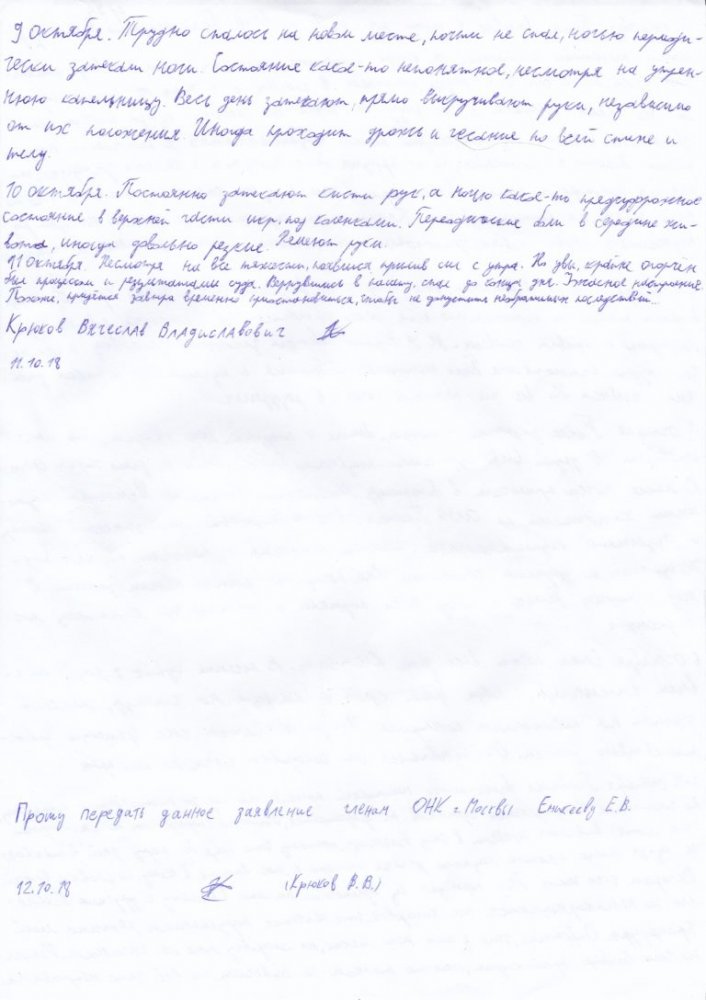 9 октября. Трудно спалось на новом месте, почти не спал, ночью периоди-
чески затекали ноги. Состояние какое-то непонятное, несмотря на утрен-
нюю капельницу. Весь день затекают, прямо выкручивают руки, независимо
от их положения. Иногда проходит дрожь и чесание по всей спине и
телу.
10 октября. Постоянно затекают кисти рук, а ночью какое-то предсудорожное
состояние в верхней части икр, под коленками. Периодические боли в середине жи-
вота, иногда довольно резкие. Немеют руки.
11 октября. Несмотря на все тяжести, появился прилив сил с утра. Но увы, крайне огорчён
был процессом и результатами суда. Вернувшись в палату, спал до конца дня. Ужасное настроение.
Похоже, придётся завтра временно приостановиться, чтобы не допустить необратимых последствий...
Крюков Вячеслав Владиславович
11.10.18
Прошу передать данное заявление членам ОНК г. Москвы Еникееву Е.В.
12.10.18 (Крюков В.В.)